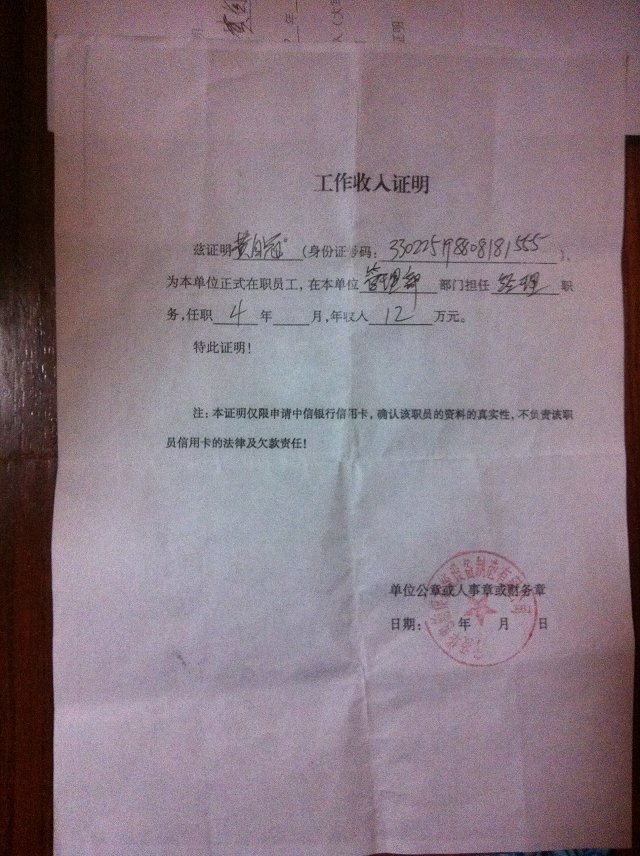 证明
工作收入证明
兹证明黄自冠(身份证号码:330225198808181555),
为本单位正式在职员工,在本单位管理部部门担任经理职
务,任职4年 月,年收入12万元。
特此证明!
注:本证明仅限申请中信银行信用卡,确认该职员的资料的真实性,不负责该职
员信用卡的法律及欠款责任!
单位公章或人事章或财务章
日期: 年 月 日
设备制造有